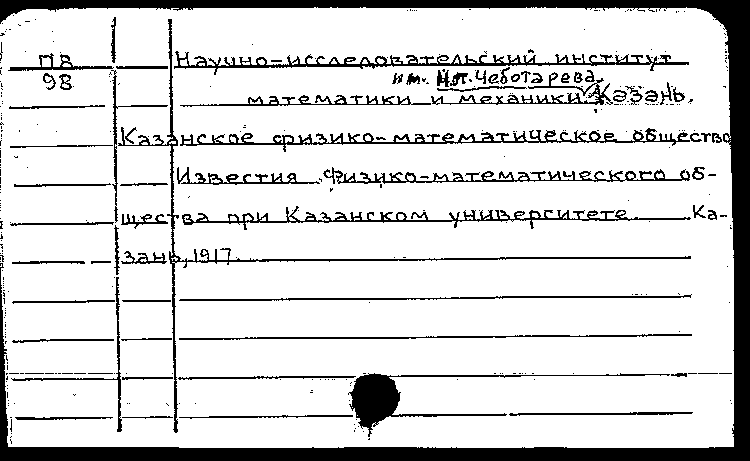 П8
98
Научно-исследовательский институт
им. Н.Г. Чеботарева
математики и механики. Казань.
Казанское физико-математическое общество
Известия физико-математического об-
щества при Казанском университете. Ка-
зань, 1917.